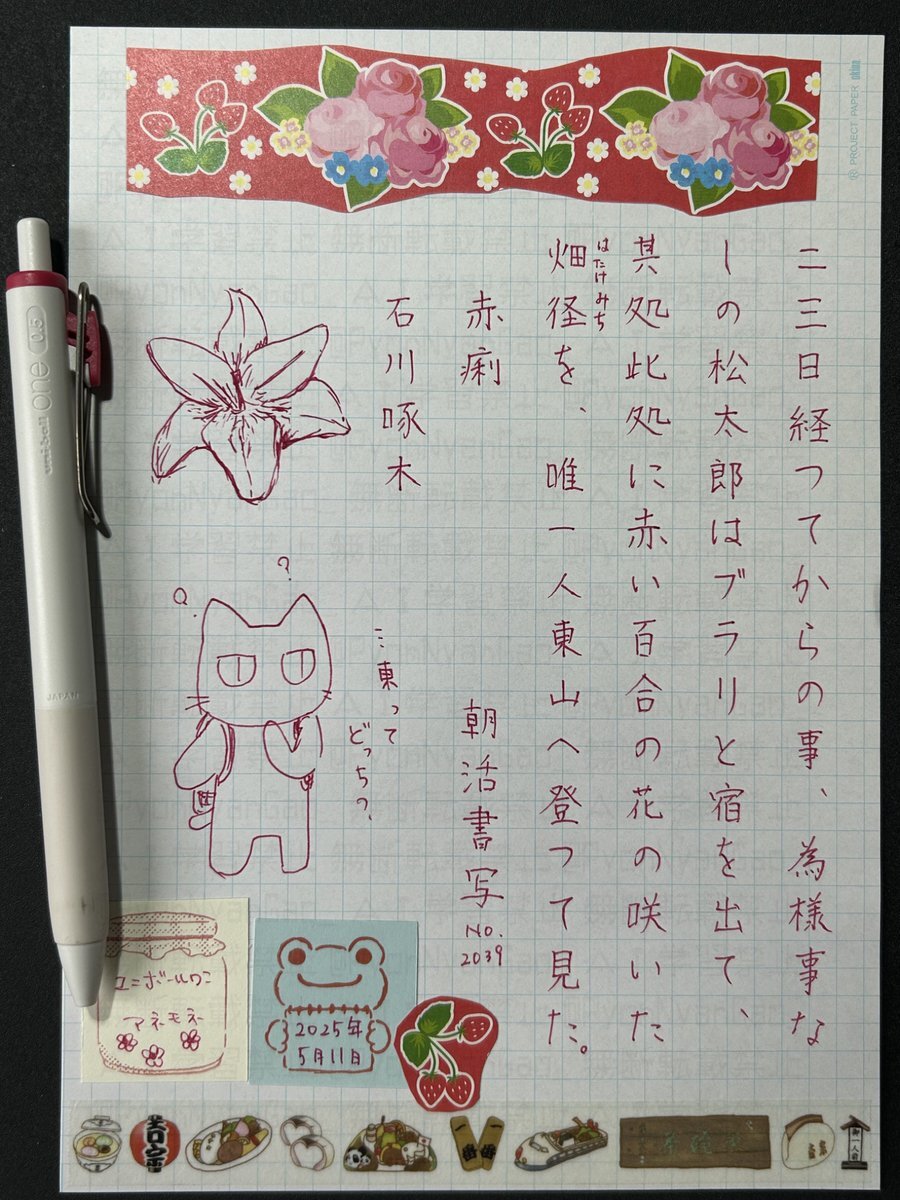 二三日経つてからの事、為様事な
しの松太郎はブラリと宿を出て、
其処此処に赤い百合の花の咲いた
畑径を、唯一人東山へ登つて見た。
はたけみち
赤痢
石川啄木
朝活書写
NO.
2039
…東って
どっち?
?
ユニボールワン
アネモネ
2025年
5月11日
uni-ball one 0.5
JAPAN
PROJECT PAPER
一番
一番